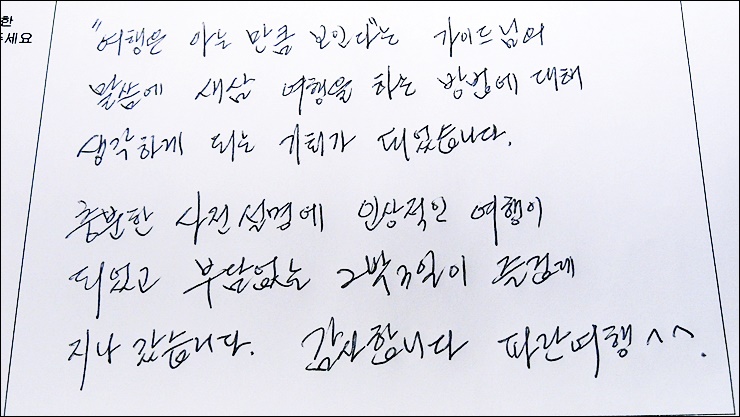 한
주세요
"여행은 아는 만큼 보인다"는 가이드님의
말씀에 새삼 여행을 하는 방법에 대해
생각하게 되는 기회가 되었습니다.
충분한 사전설명에 인상적인 여행이
되었고 부담없는 2박3일이 즐겁게
지나갔습니다. 감사합니다 파란여행^^.